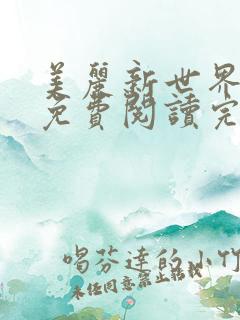 美麗新世界
免費閱讀完
喝芬達的小竹
未任同意禁止轉載